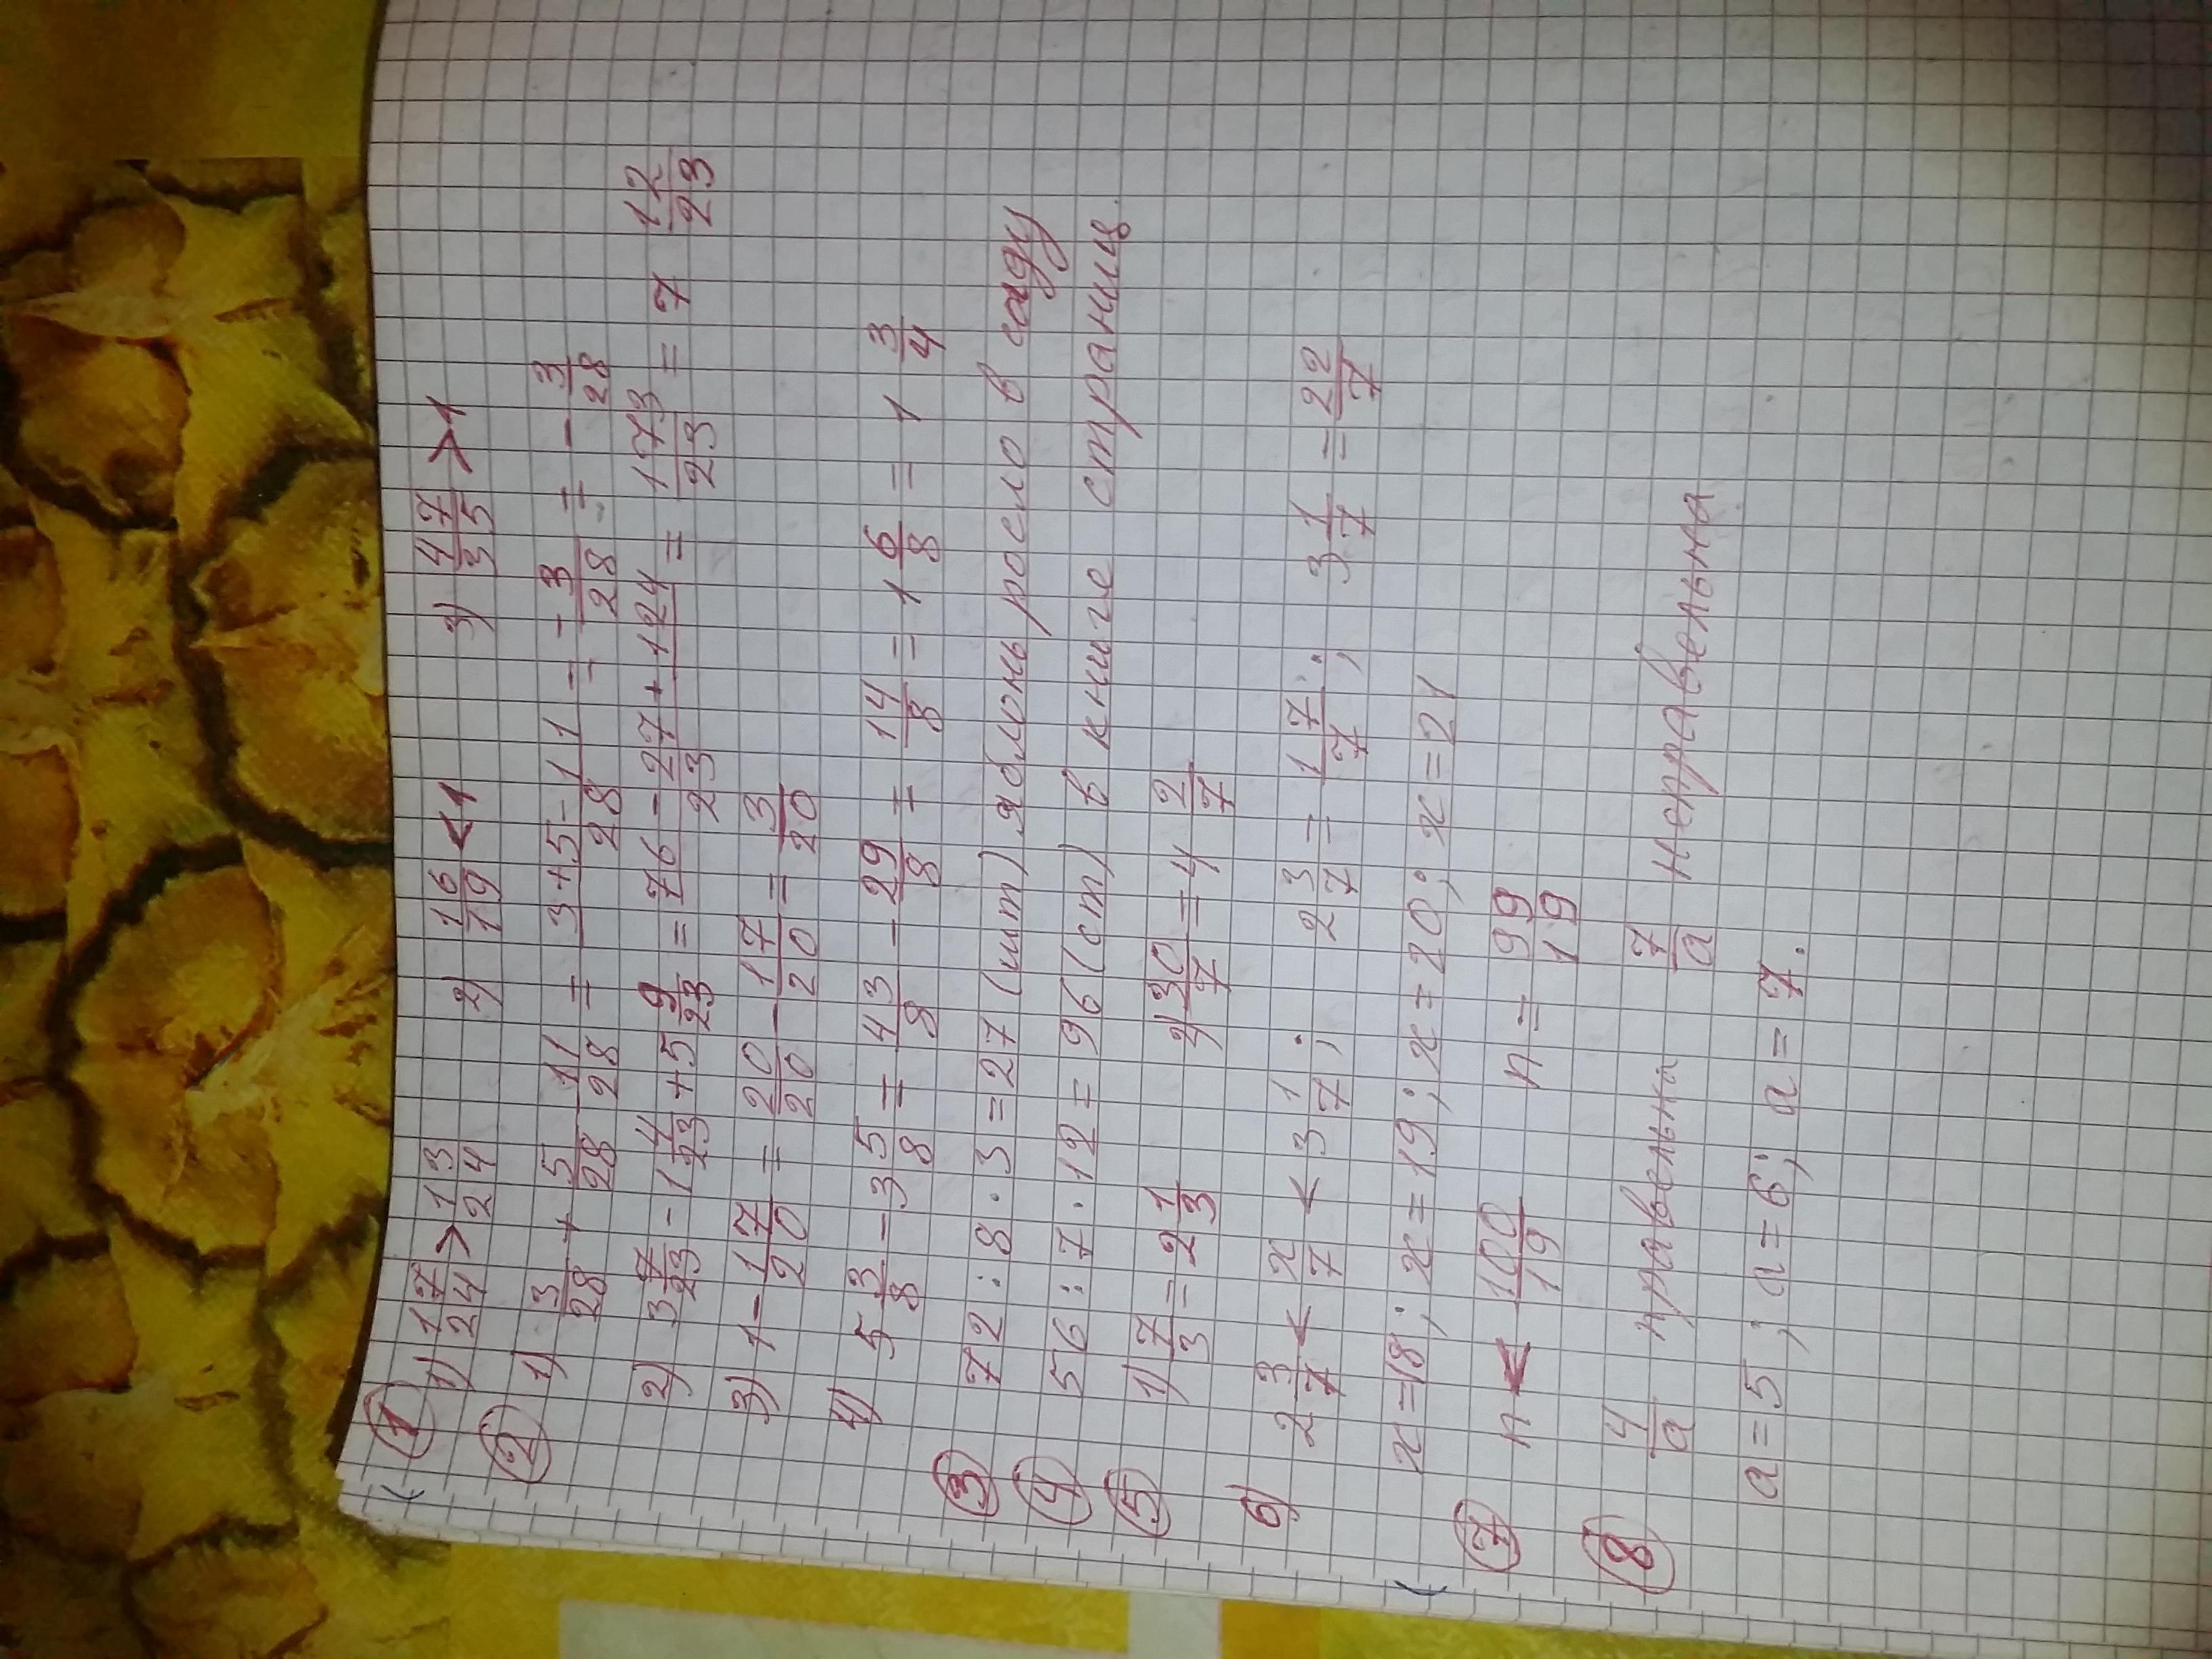 ① 1) 17/24 > 13/24 2) 16/19 < 1 3) 47/35 > 1
② 1) 3/28 + 5/28 11/28 = 3+5-11/28 = = -3/28 = = -3/28
2) 3 7/23 - 1 4/23 + 5 9/23 = 76 - 27 + 124/23 = 173/23 = 7 12/23
3) 1 - 17/20 = 20/20 - 17/20 = 3/20
4) 5 3/8 - 3 5/8 = 43/8 - 29/8 = 14/8 = 1 6/8 = 1 3/4
③ 72 : 8 · 3 = 27 (шт) яблонь росло в саду
④ 56 : 7 · 12 = 96 (ст) в книге страниц.
⑤ 1) 7/3 = 2 1/3 2) 30/7 = 4 2/7
6) 2 3/7 < x/7 < 3 1/7 ; 2 3/7 = 17/7 ; 3 1/7 = 22/7
x = 18 ; x = 19 ; x = 20 ; x = 21
⑦ n < 100/19 n = 99/19
⑧ 4/a правельна 7/a неправельна
a = 5 ; a = 6 ; a = 7.